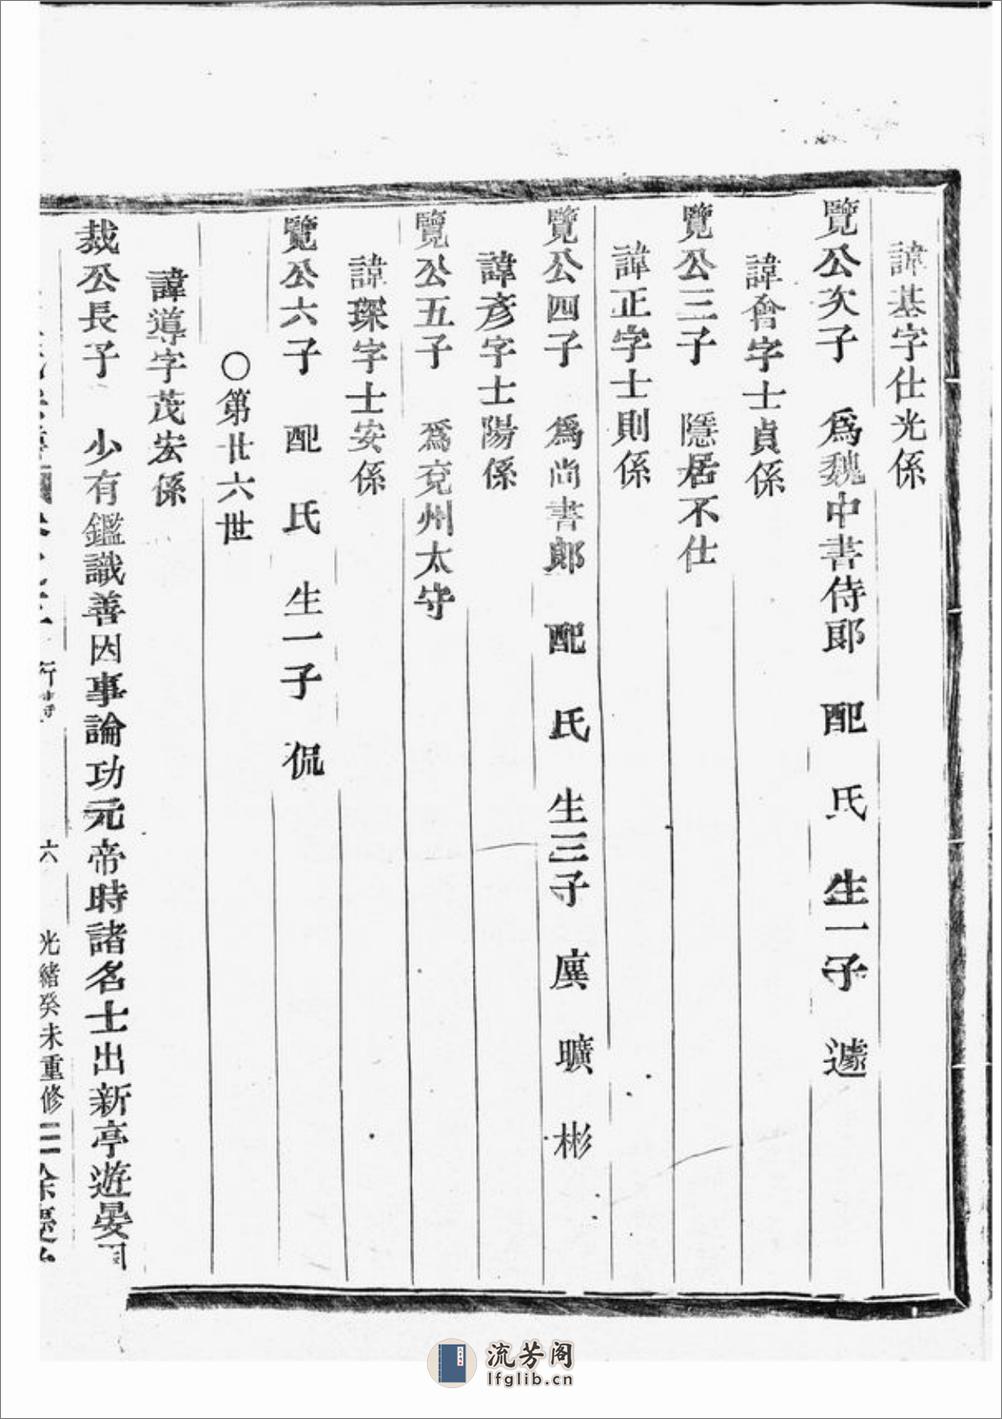 諱基字仕光係
覽公次子 爲魏中書侍郎 配 氏 生一子 遽
諱會字士貞係
覽公三子 隱居不仕
諱正字士則係
覽公四子 爲尚書郎 配 氏 生三子 廙 曠 彬
諱彥字士陽係
覽公五子 爲兗州太守
諱琛字士安係
覽公六子 配 氏 生一子 侃
○第廿六世
諱導字茂宏係
裁公長子 少有鑑識善因事論功元帝時諸名士出新亭遊晏
六 光緒癸未重修三
流芳阁
lfglib.cn